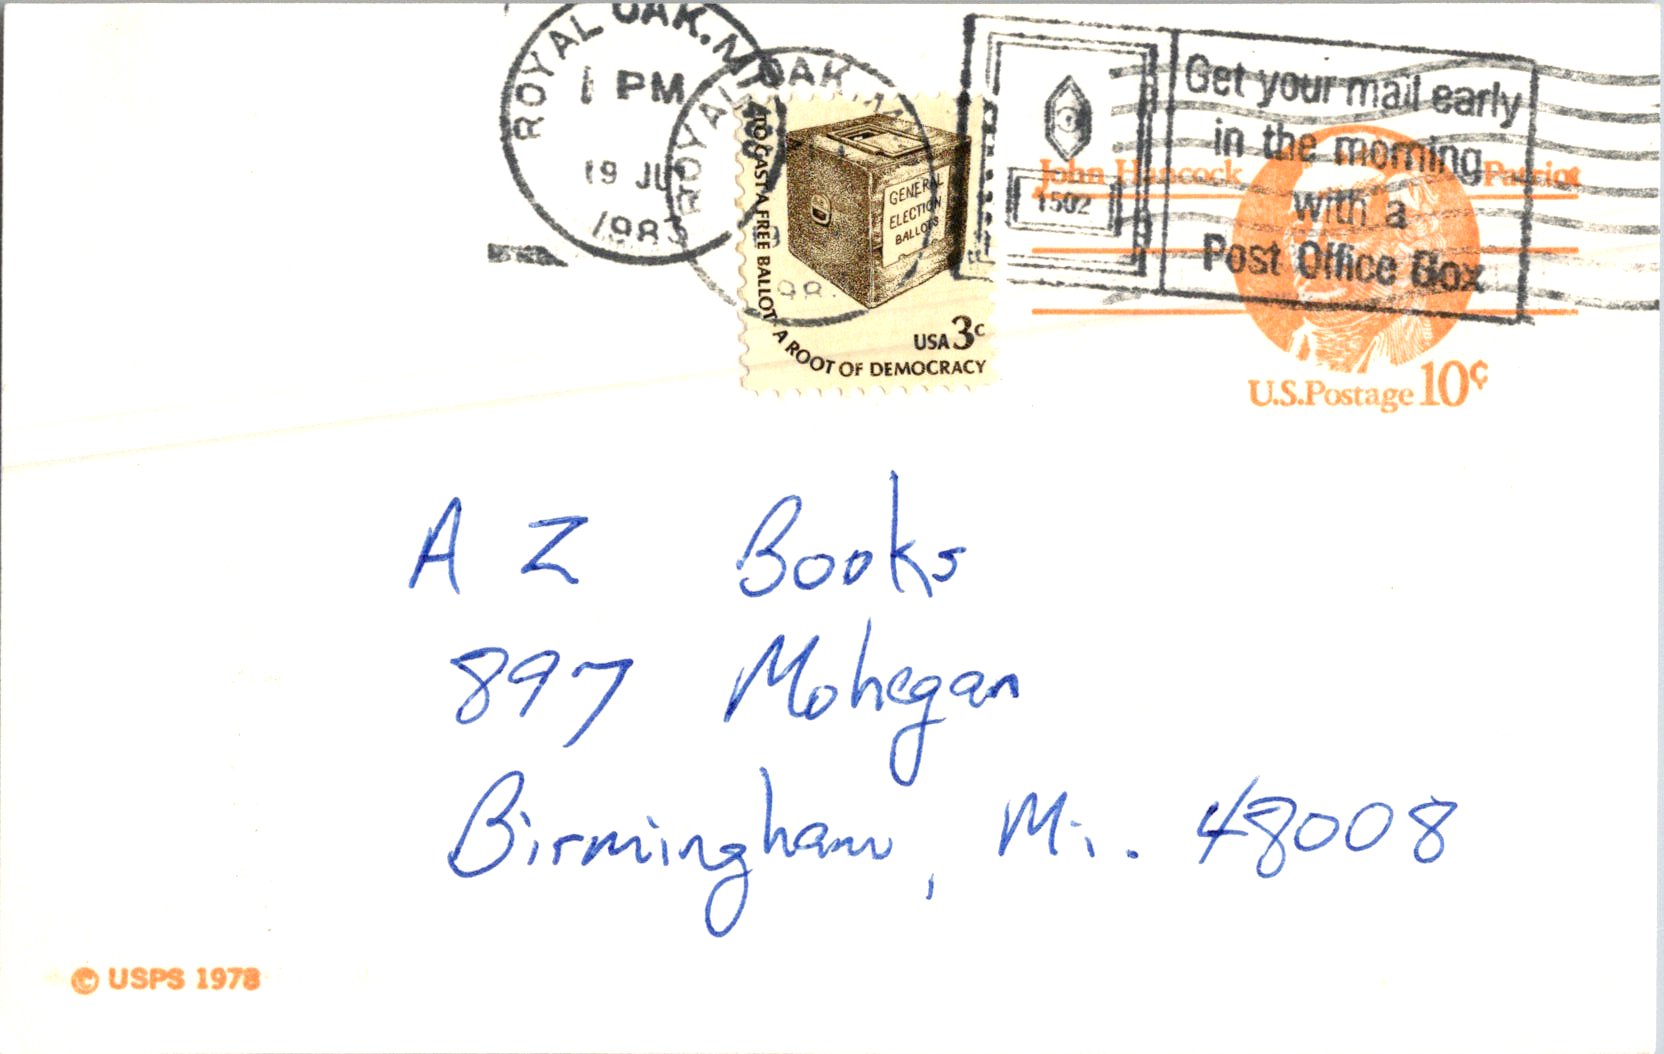 ROYAL OAK, MI
PM
19 JUL
1983
ROYAL OAK, MI
198
TO CAST A FREE BALLOT - A ROOT OF DEMOCRACY
GENERAL
ELECTION
BALLOTS
USA 3c
1502
Get your mail early
in the morning
with a
Post Office Box
John Hancock Patriot
U.S. Postage 10¢
A Z Books
897 Mohegan
Birmingham, Mi. 48008
© USPS 1978